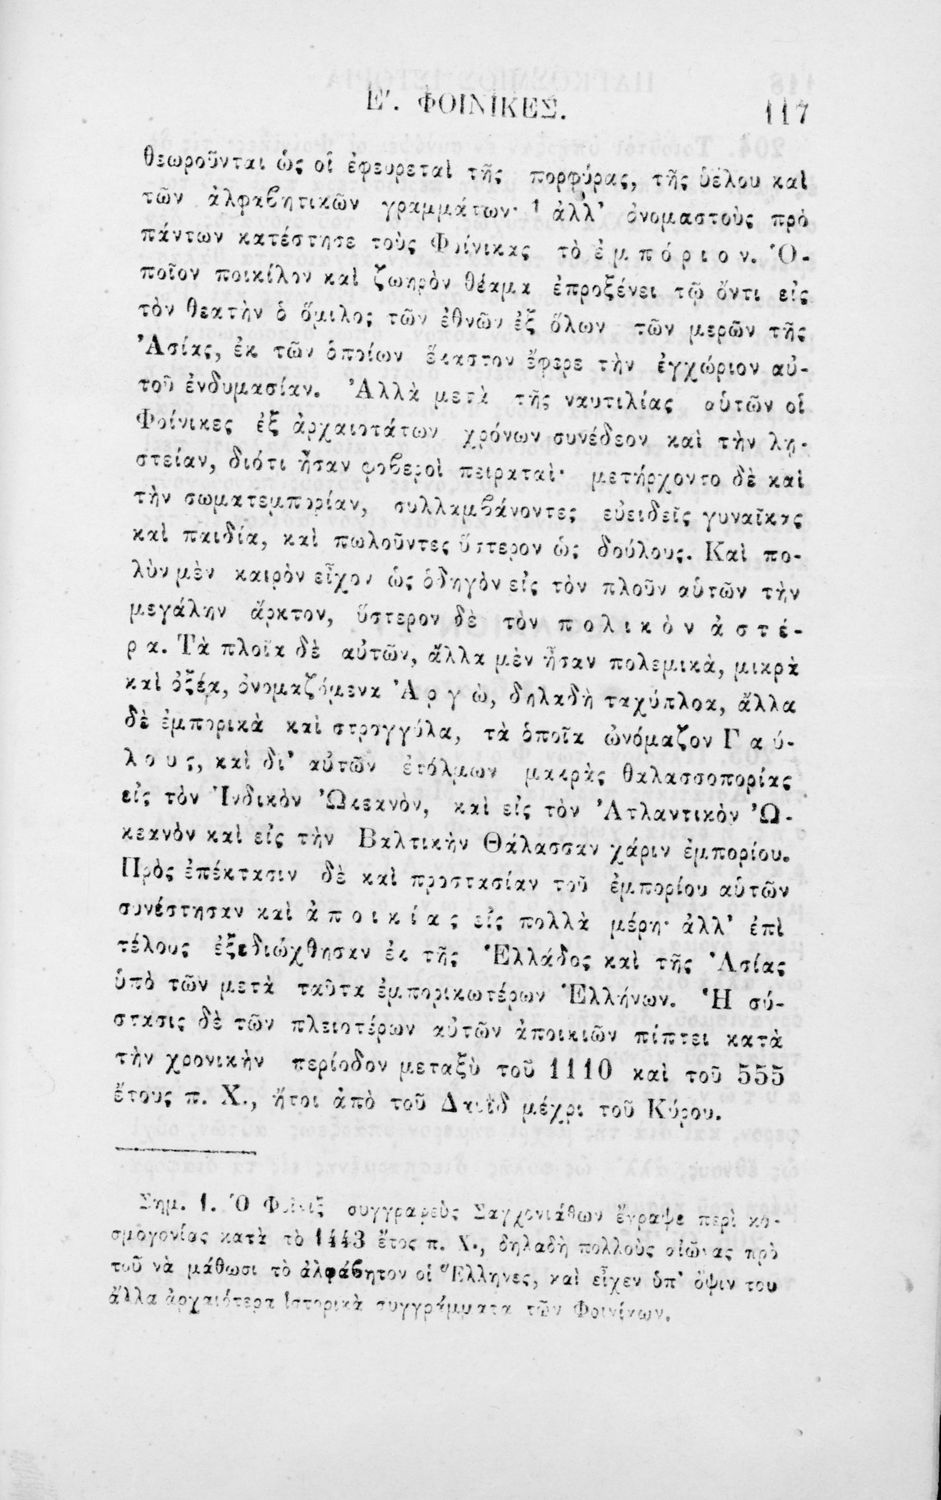 Ε'. ΦΟΙΝΙΚΕΣ.
117
θεωροῦνται ὡς οἱ ἐφευρεταὶ τῆς πορφύρας, τῆς ὑέλου καὶ
τῶν ἀλφαβητικῶν γραμμάτων· 1 ἀλλ' ὀνομαστοὺς πρὸ
πάντων κατέστησε τοὺς Φοίνικας τὸ ἐμπόριον. Ὁ-
ποῖον ποικίλον καὶ ζωηρὸν θέαμα ἐπροξένει τῷ ὄντι εἰς
τὸν θεατὴν ὁ ὅμιλος τῶν ἐθνῶν ἐξ ὅλων τῶν μερῶν τῆς
Ἀσίας, ἐκ τῶν ὁποίων ἕκαστον ἔφερε τὴν ἐγχώριον αὐ-
τοῦ ἐνδυμασίαν. Ἀλλὰ μετὰ τῆς ναυτιλίας αὑτῶν οἱ
Φοίνικες ἐξ ἀρχαιοτάτων χρόνων συνέδεον καὶ τὴν λῃ-
στείαν, διότι ἦσαν φοβεροὶ πειραταί· μετήρχοντο δὲ καὶ
τὴν σωματεμπορίαν, συλλαμβάνοντες εὐειδεῖς γυναῖκας
καὶ παιδία, καὶ πωλοῦντες ὕστερον ὡς δούλους. Καὶ πο-
λὺν μὲν καιρὸν εἶχον ὡς ὁδηγὸν εἰς τὸν πλοῦν αὑτῶν τὴν
μεγάλην ἄρκτον, ὕστερον δὲ τὸν πολικὸν ἀστέ-
ρα. Τὰ πλοῖα δὲ αὐτῶν, ἄλλα μὲν ἦσαν πολεμικὰ, μικρὰ
καὶ ὀξέα, ὀνομαζόμενα Ἀργὼ, δηλαδὴ ταχύπλοα, ἄλλα
δὲ ἐμπορικὰ καὶ στρογγύλα, τὰ ὁποῖα ὠνόμαζον Γαύ-
λους, καὶ δι' αὐτῶν ἐτόλμων μακρὰς θαλασσοπορίας
εἰς τὸν Ἰνδικὸν Ὠκεανὸν, καὶ εἰς τὸν Ἀτλαντικὸν Ὠ-
κεανὸν καὶ εἰς τὴν Βαλτικὴν Θάλασσαν χάριν ἐμπορίου.
Πρὸς ἐπέκτασιν δὲ καὶ προστασίαν τοῦ ἐμπορίου αὑτῶν
συνέστησαν καὶ ἀποικίας εἰς πολλὰ μέρη· ἀλλ' ἐπὶ
τέλους ἐξεδιώχθησαν ἐκ τῆς Ἑλλάδος καὶ τῆς Ἀσίας
ὑπὸ τῶν μετὰ ταῦτα ἐμπορικωτέρων Ἑλλήνων. Ἡ σύ-
στασις δὲ τῶν πλειοτέρων αὐτῶν ἀποικιῶν πίπτει κατὰ
τὴν χρονικὴν περίοδον μεταξὺ τοῦ 1110 καὶ τοῦ 555
ἔτους π. Χ., ἤτοι ἀπὸ τοῦ Δαυῒδ μέχρι τοῦ Κύρου.
Σημ. 1. Ὁ Φοῖνιξ συγγραφεὺς Σαγχονιάθων ἔγραψε περὶ κο-
σμογονίας κατὰ τὸ 1443 ἔτος π. Χ., δηλαδὴ πολλοὺς αἰῶνας πρὸ
τοῦ νὰ μάθωσι τὸ ἀλφάβητον οἱ Ἕλληνες, καὶ εἶχεν ὑπ' ὄψιν του
ἄλλα ἀρχαιότερα ἱστορικὰ συγγράμματα τῶν Φοινίκων.